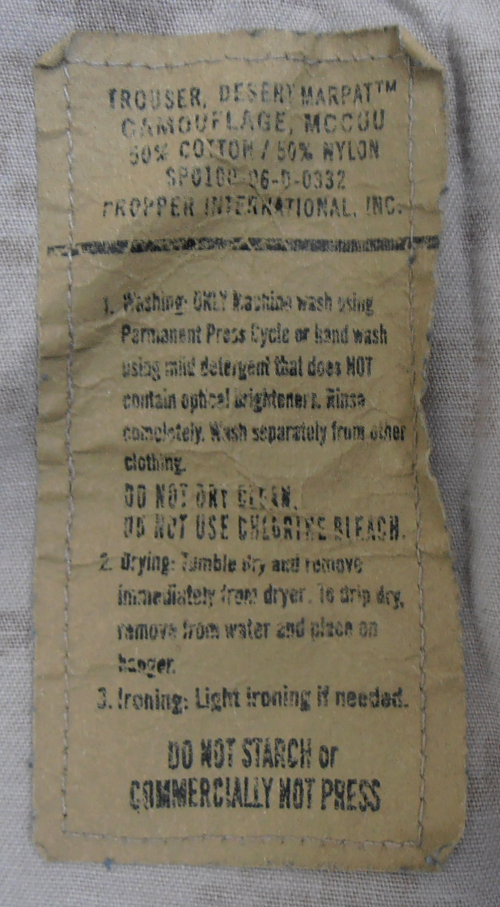 TROUSER, DESERT MARPAT™
CAMOUFLAGE, MCCUU
50% COTTON / 50% NYLON
SPO100-06-D-0332
PROPPER INTERNATIONAL, INC.
1. Washing: ONLY Machine wash using
Permanent Press Cycle or hand wash
using mild detergent that does NOT
contain optical brighteners. Rinse
completely. Wash separately from other
clothing.
DO NOT DRY CLEAN.
DO NOT USE CHLORINE BLEACH.
2. Drying: Tumble dry and remove
immediately from dryer. To drip dry,
remove from water and place on
hanger.
3. Ironing: Light ironing if needed.
DO NOT STARCH or
COMMERCIALLY HOT PRESS